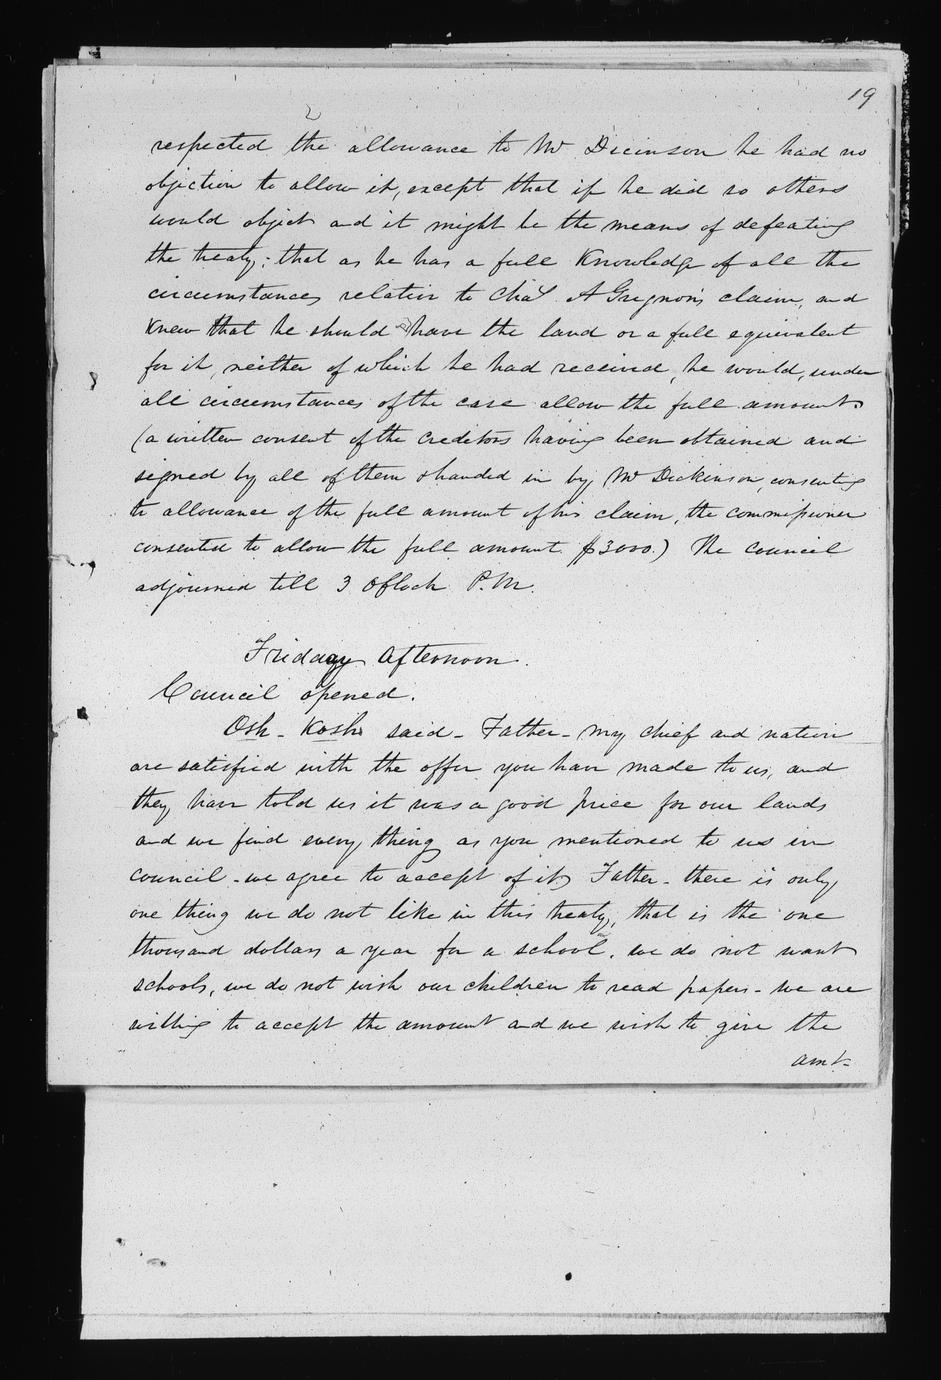 19
respected the allowance to Mr Dicinson he had no
objection to allow it, except that if he did so others
would object and it might be the means of defeating
the treaty; that as he has a full Knowledge of all the
circumstances relative to Chas A Grignon's claim, and
Knew that he should have the land or a full equivalent
for it, neither of which he had received, he would, under
all circumstances of the case allow the full amount
(a written consent of the creditors having been obtained and
signed by all of them & handed in by Mr Dickinson, consenting
to allowance of the full amount of his claim, the commissioner
consented to allow the full amount $3000.) The council
adjourned till 3 Oflock P.M.
Friday Afternoon.
Council opened.
Osh-Kosh said - Father - my chief and nation
are satisfied with the offer you have made to us, and
they have told us it was a good price for our lands
and we find every thing as you mentioned to us in
council - we agree to accept of it) Father - there is only
one thing we do not like in this treaty, that is the one
thousand dollars a year for a school. we do not want
schools, we do not wish our children to read papers - we are
willing to accept the amount and we wish to give the
amt-